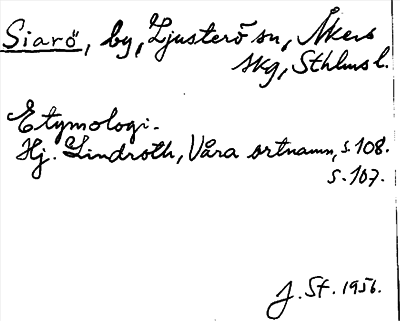 Siarö, by, Ljusterö sn, Åkers
skg, Sthlms l.
Etymologi.
Hj. Lindroth, Våra ortnamn, s. 108.
s. 107.
J. St. 1956.